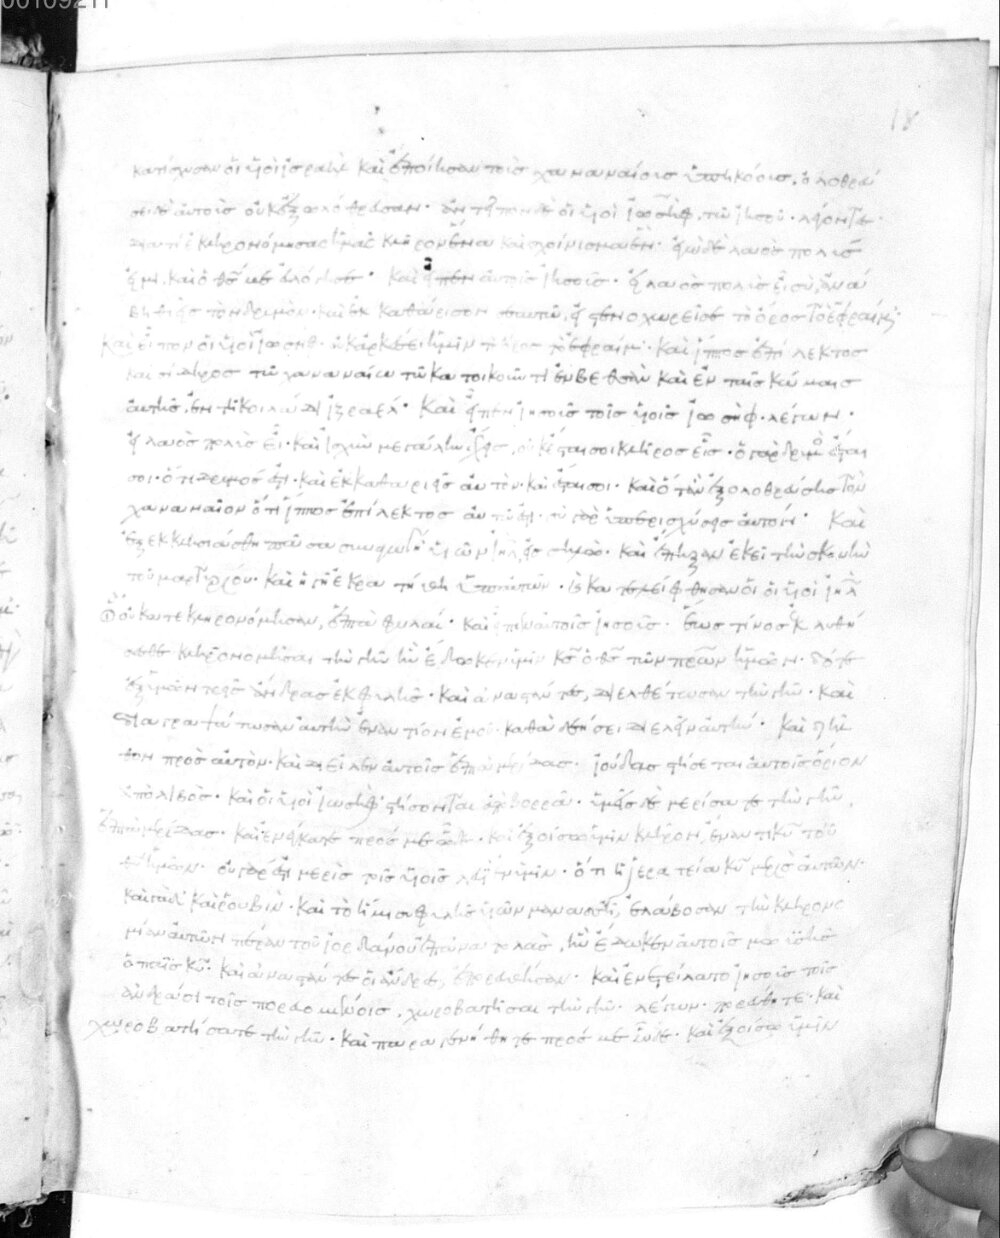 00109211
18
κατίσχυσαν οἱ υἱοὶ ἰσραὴλ καὶ ἐποίησαν τοὺς χαναναίους ὑπηκόους. ὀλοθρεύ
σαι δὲ αὐτοὺς οὐκ ἐξωλόθρευσαν. ἀντεῖπαν δὲ οἱ υἱοὶ ἰωσὴφ τῶ ἰησοῦ. λέγοντες.
διατί ἐκληρονόμησας ἡμᾶς κλῆρον ἕνα καὶ σχοίνισμα ἕν. ἐγὼ δὲ λαὸς πολύς
εἰμι. καὶ ὁ θς με εὐλόγησε. καὶ εἶπεν αὐτοῖς ἰησοῦς. εἰ λαὸς πολὺς εἶ σύ, ἀνά
βηθι εἰς τὸν δρυμὸν. καὶ ἐκκαθάρισον σεαυτῶ, εἰ στενοχωρεῖ σε τὸ ὄρος τὸ ἐφραΐμ.
καὶ εἶπον οἱ υἱοὶ ἰωσὴφ. οὐκ ἀρκέσει ἡμῖν τὸ ὄρος τὸ ἐφραΐμ. καὶ ἵππος ἐπίλεκτος
καὶ σίδηρος τῶ χαναναίω τῶ κατοικοῦντι ἐν βεθσὰν καὶ ἐν ταῖς κώμαις
αὐτῆς. ἐν τῆ κοιλάδι ἰεζραέλ. καὶ εἶπεν ἰησοῦς τοῖς υἱοῖς ἰωσὴφ. λέγων.
εἰ λαὸς πολὺς εἶ. καὶ ἰσχὺν μεγάλην ἔχεις, οὐκ ἔσται σοι κλῆρος εἷς. ὁ γὰρ δρυμὸς ἔσται
σοι. ὅτι δρυμός ἐστι. καὶ ἐκκαθαριεῖς αὐτὸν. καὶ ἔσται σοι. καὶ ὅταν ἐξολοθρεύσης τὸν
χαναναῖον ὅτι ἵππος ἐπίλεκτος αὐτῶ ἐστι. σὺ γὰρ ὑπερισχύσεις αὐτόν. καὶ
ἐξεκκλησιάσθη πᾶσα συναγωγὴ υἱῶν ιηλ εἰς σηλὼ. καὶ ἔπηξαν ἐκεῖ τὴν σκηνὴν
τοῦ μαρτυρίου. καὶ ἡ γῆ ἐκρατήθη ὑπ' αὐτῶν. καὶ κατελείφθησαν οἱ υἱοὶ ιηλ
οἳ οὐκ ἀτεκληρονόμησαν, ἑπτὰ φυλαί. καὶ εἶπεν αὐτοῖς ἰησοῦς. ἕως τίνος ἐκλυθή
σεσθε κληρονομῆσαι τὴν γῆν ἣν ἔδωκεν ἡμῖν κς ὁ θς τῶν πρων ἡμῶν. δότε
ἐξ ὑμῶν τρεῖς ἄνδρας ἐκ φυλῆς. καὶ ἀναστάντες, διελθέτωσαν τὴν γῆν. καὶ
διαγραψάτωσαν αὐτὴν ἐναντίον ἐμοῦ. καθὰ δεήσει διελεῖν αὐτήν. καὶ ἦλ
θον πρὸς αὐτὸν. καὶ διεῖλεν αὐτοῖς ἑπτὰ μερίδας. ἰούδας στήσεται αὐτοῖς ὅριον
ἀπὸ λιβὸς. καὶ οἱ υἱοὶ ἰωσὴφ στήσονται ἀπὸ βορρᾶ. ὑμεῖς δὲ μερίσατε τὴν γῆν,
ἑπτὰ μερίδας. καὶ ἐνέγκατε πρός με ὧδε. καὶ ἐξοίσω ὑμῖν κλῆρον ἔναντι κυ τοῦ
θυ ἡμῶν. οὐ γάρ ἐστι μερὶς τοῖς υἱοῖς λευὶ ἐν ὑμῖν. ὅτι ἱερατεία κυ μερὶς αὐτῶν.
καὶ γὰδ καὶ ῥουβὶν. καὶ τὸ ἥμισυ φυλῆς υἱῶν μανασσῆ, ἐλάβοσαν τὴν κληρονο
μίαν αὐτῶν πέραν τοῦ ἰορδάνου ἐπ' ἀνατολὰς, ἣν ἔδωκεν αὐτοῖς μωϋσῆς
ὁ παῖς κυ. καὶ ἀναστάντες οἱ ἄνδρες, ἐπορεύθησαν. καὶ ἐνετείλατο ἰησοῦς τοῖς
ἀνδράσι τοῖς πορευομένοις, χωροβατῆσαι τὴν γῆν. λέγων. πορεύεσθε. καὶ
χωροβατήσατε τὴν γῆν. καὶ παραγενήθητε πρός με ὧδε. καὶ ἐξοίσω ὑμῖν